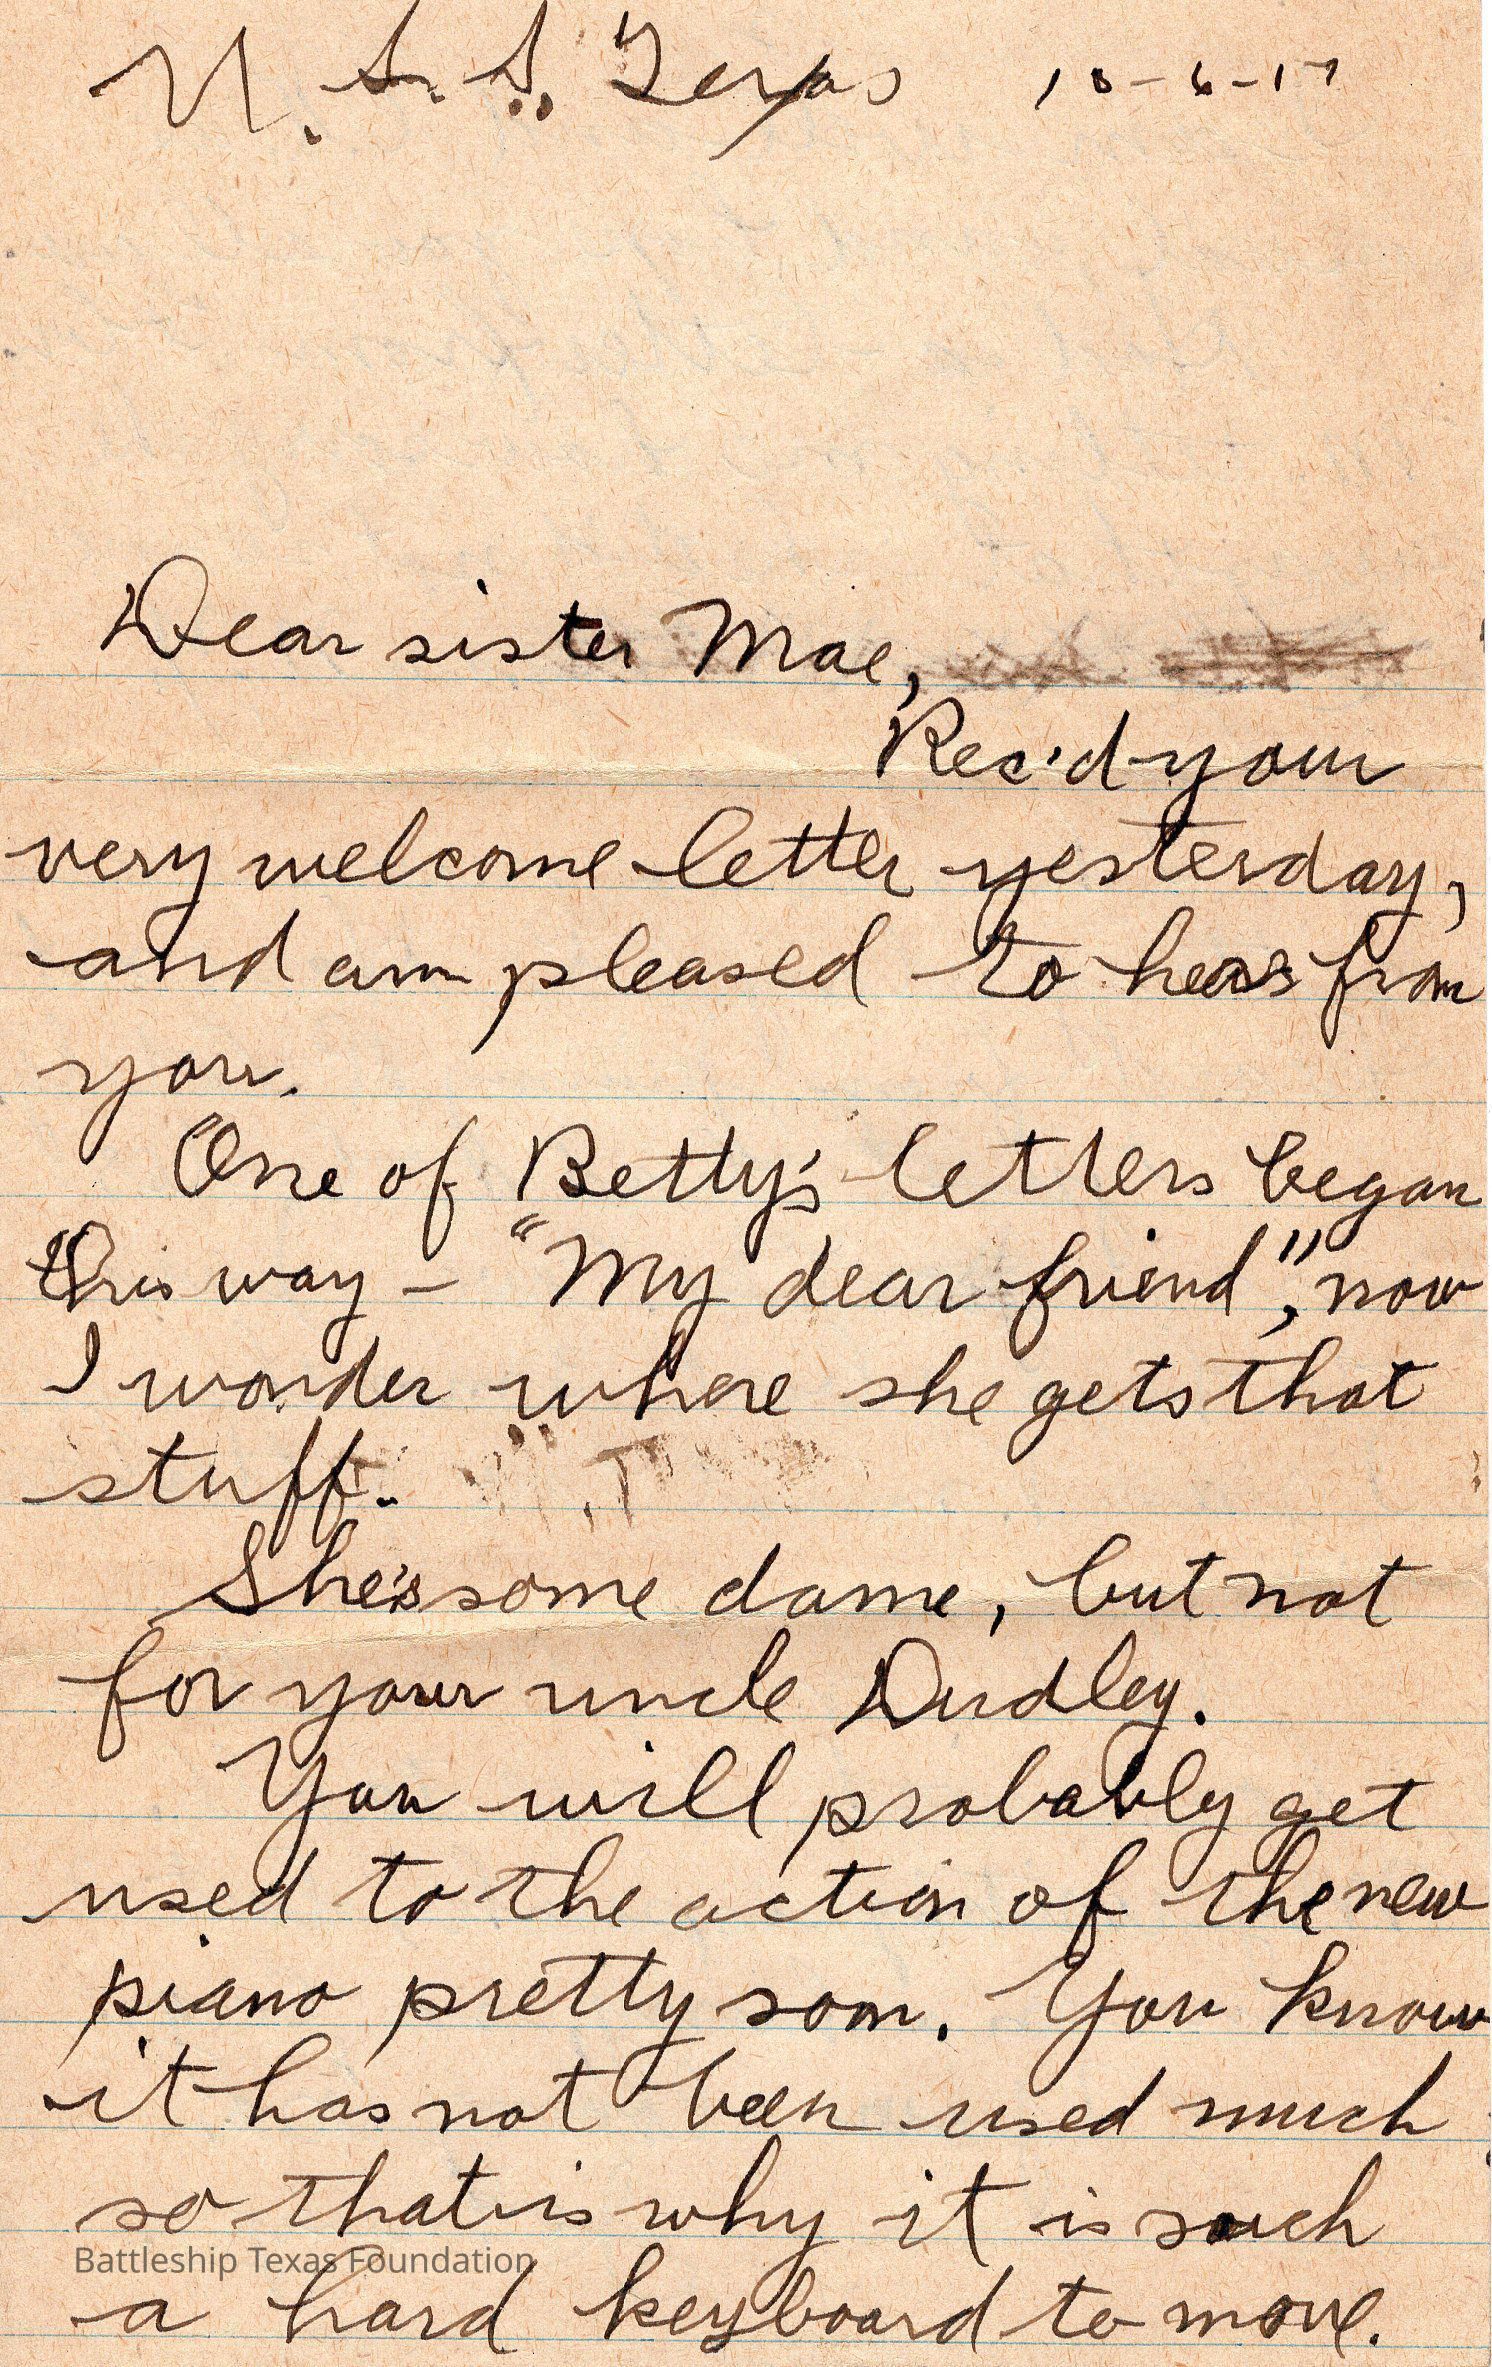 U.S.S. Texas 10-6-17
Dear sister Mae,
Rec'd your
very welcome letter yesterday,
and am pleased to hear from
you.
One of Betty's letters began
this way - "My dear friend", now
I wonder where she gets that
stuff.
She's some dame, but not
for your uncle Dudley.
You will probably get
used to the action of the new
piano pretty soon. You know
it has not been used much
so that is why it is such
Battleship Texas Foundation
a hard keyboard to move.